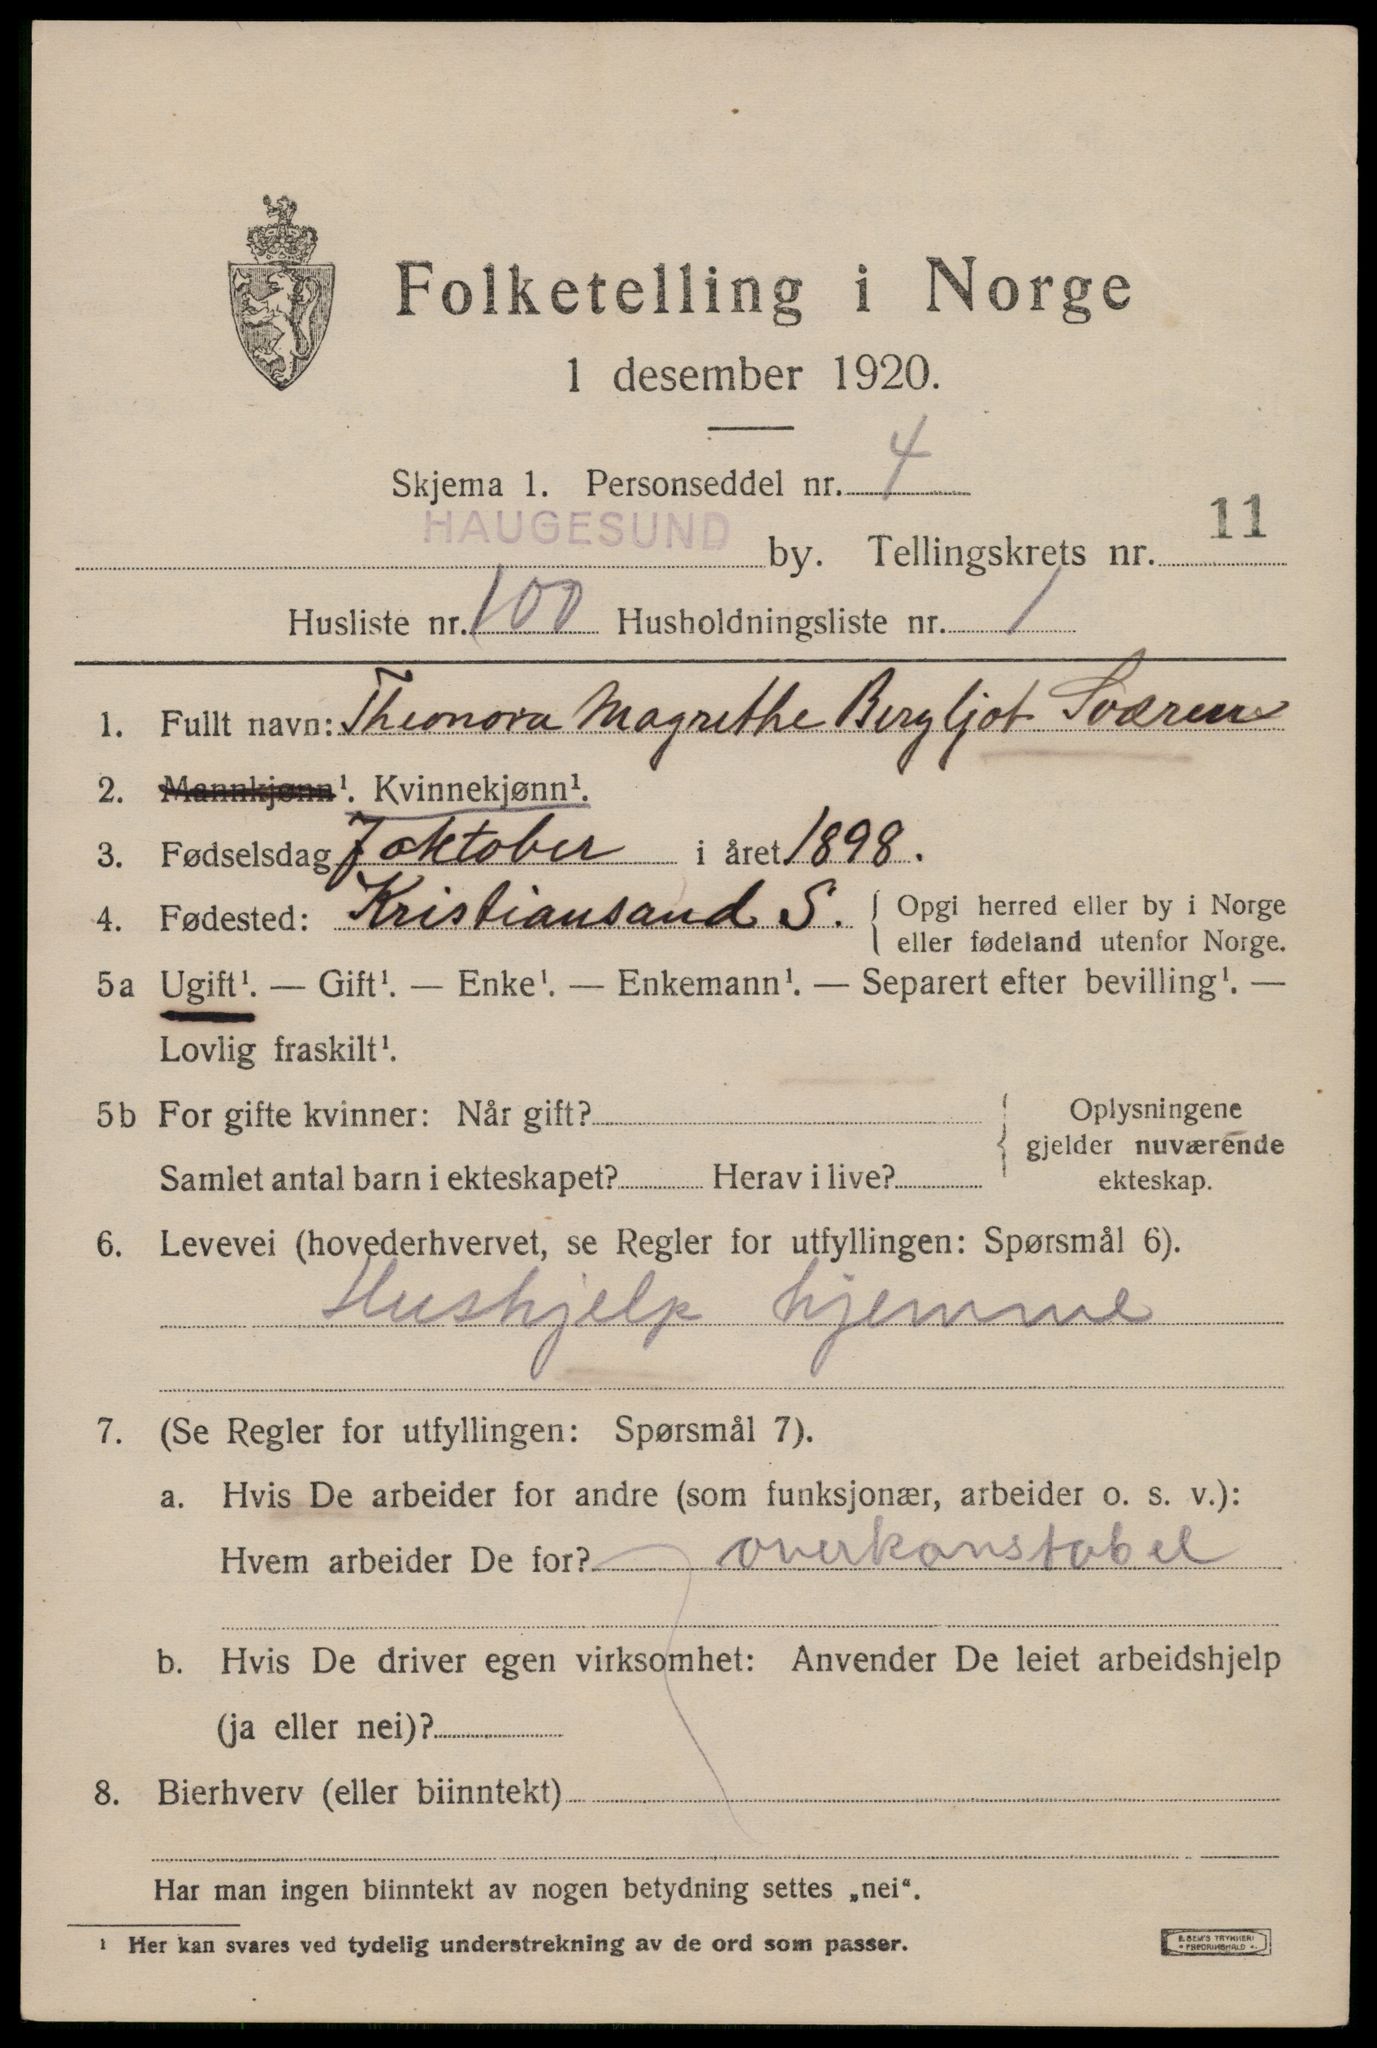 Folketelling i Norge
1 desember 1920.
Skjema 1. Personseddel nr. 4
HAUGESUND by. Tellingskrets nr. 11
Husliste nr. 100 Husholdningsliste nr. 1
1. Fullt navn: Theonora Magrethe Bergljot Sværen
2. Mannkjønn¹. Kvinnekjønn¹.
3. Fødselsdag 7 oktober i året 1898.
4. Fødested: Kristiansand S. { Opgi herred eller by i Norge
eller fødeland utenfor Norge.
5a Ugift¹. — Gift¹. — Enke¹. — Enkemann¹. — Separert efter bevilling¹. —
Lovlig fraskilt¹.
5b For gifte kvinner: Når gift?
Samlet antal barn i ekteskapet? Herav i live?
{ Oplysningene
gjelder nuværende
ekteskap.
6. Levevei (hovederhvervet, se Regler for utfyllingen: Spørsmål 6).
Hushjelp hjemme
7. (Se Regler for utfyllingen: Spørsmål 7).
a. Hvis De arbeider for andre (som funksjonær, arbeider o. s. v.):
Hvem arbeider De for? overkonstabel
b. Hvis De driver egen virksomhet: Anvender De leiet arbeidshjelp
(ja eller nei)?
8. Bierhverv (eller biinntekt)
Har man ingen biinntekt av nogen betydning settes „nei“.
¹ Her kan svares ved tydelig understrekning av de ord som passer.
E. SEM'S TRYKKERI
FREDRIKSHALD